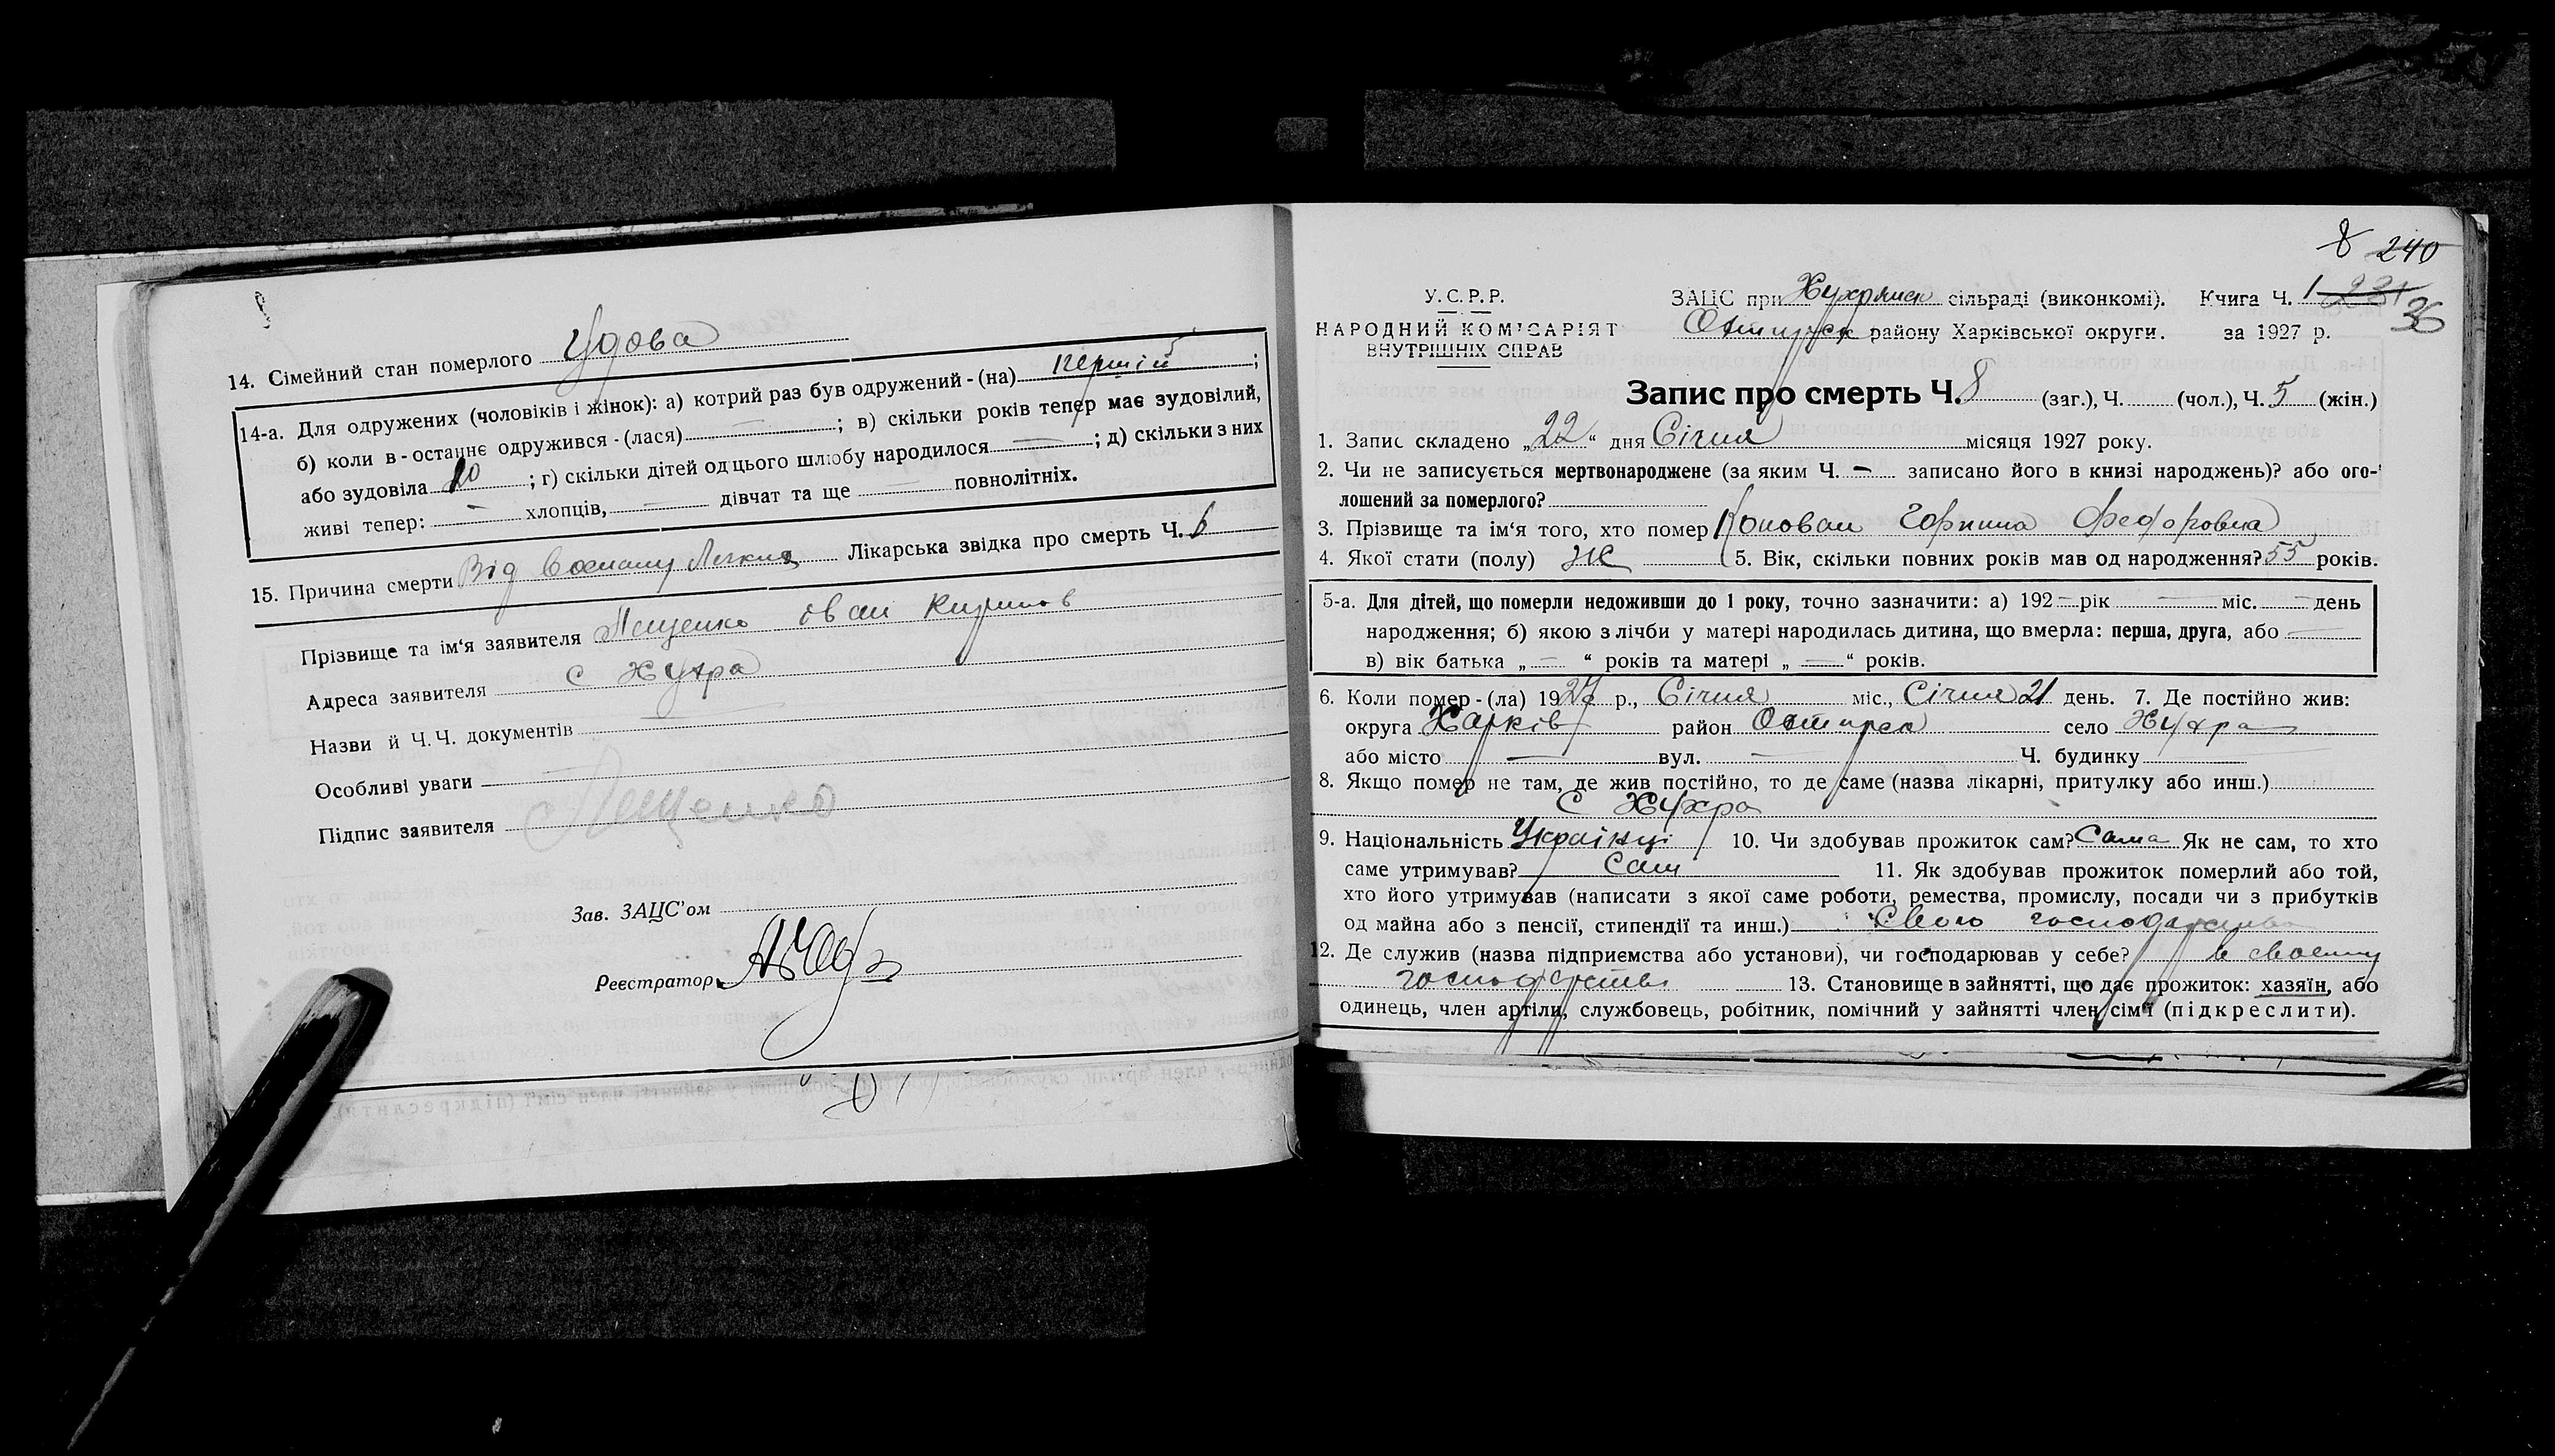 14. Сімейний стан померлого Удова
14-а. Для одружених (чоловіків і жінок): а) котрий раз був одружений - (на) перший 5 ;
б) коли в-останнє одружився - (лася) — ; в) скільки років тепер має зудовілий,
або зудовіла 20 ; г) скільки дітей од цього шлюбу народилося — ; д) скільки з них
живі тепер: — хлопців, — дівчат та ще — повнолітніх.
15. Причина смерти Від Лікарська звідка про смерть Ч.
Прізвище та ім'я заявителя Пещенко Іван
Адреса заявителя с Хухра
Назви й Ч.Ч. документів —
Особливі уваги —
Підпис заявителя Пещенко
Зав. ЗАЦС'ом
Реєстратор
8 240
У.С.Р.Р.
НАРОДНИЙ КОМІСАРІЯТ
ВНУТРІШНІХ СПРАВ
ЗАЦС при Хухрянск сільраді (виконкомі). Книга Ч. 1 231 36
Охтирск району Харківської округи. за 1927 р.
Запис про смерть Ч. 8 (заг.), Ч. (чол.), Ч. 5 (жін.)
1. Запис складено „22“ дня Січня місяця 1927 року.
2. Чи не записується мертвонароджене (за яким Ч. — записано його в книзі народжень)? або ого-
лошений за померлого?
3. Прізвище та ім'я того, хто помер Коновал Горпина Федоровна
4. Якої стати (полу) Ж 5. Вік, скільки повних років мав од народження? 55 років.
5-а. Для дітей, що померли недоживши до 1 року, точно зазначити: а) 192 — рік — міс. — день
народження; б) якою з лічби у матері народилась дитина, що вмерла: перша, друга, або —
в) вік батька „ — “ років та матері „ — “ років.
6. Коли помер - (ла) 1927 р., Січня міс., Січня 21 день. 7. Де постійно жив:
округа Харків район Охтирск село Хухра
або місто — вул. — Ч. будинку
8. Якщо помер не там, де жив постійно, то де саме (назва лікарні, притулку або инш.)
С Хухра
9. Національність Українці 10. Чи здобував прожиток сам? Сама Як не сам, то хто
саме утримував? Сам 11. Як здобував прожиток померлий або той,
хто його утримував (написати з якої саме роботи, ремества, промислу, посади чи з прибутків
од майна або з пенсії, стипендії та инш.) Свого господарства
12. Де служив (назва підприємства або установи), чи господарював у себе? в своєму
господарстві 13. Становище в зайнятті, що дає прожиток: хазяїн, або
одинець, член артіли, службовець, робітник, помічний у зайнятті член сім'ї (підкреслити).